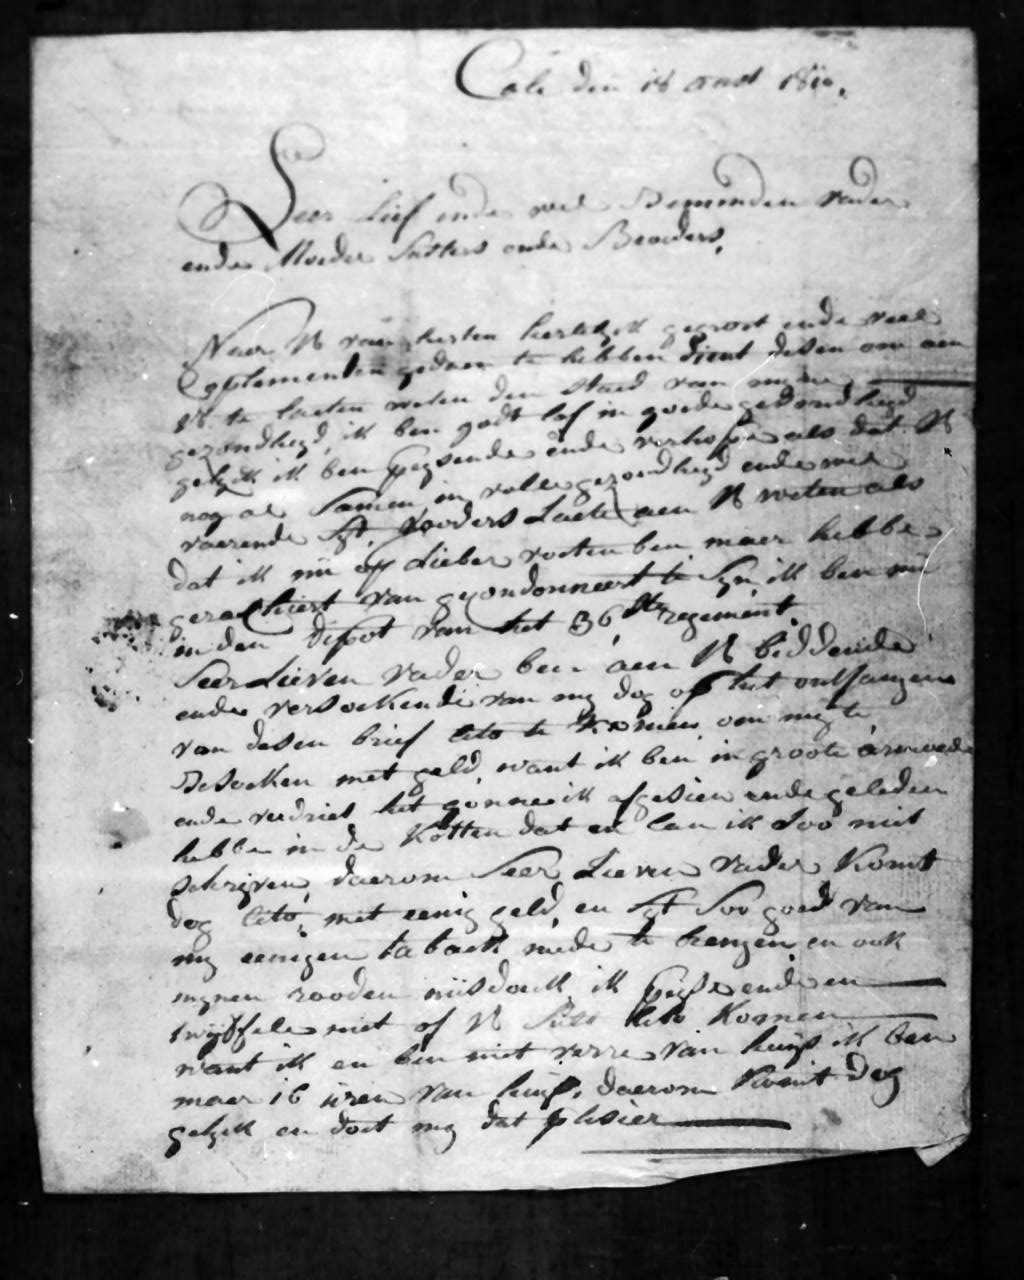 Cale den 18 oust 1810.
Seer Lief ende wel Beminden vader
ende Moeder Susters ende Broeders,
Naer U van herten hertelyk gegroet ende veel
Complementen gedaen te hebben dient desen om aen
U te laeten weten den staed van myne
gezondheyd, ik ben godt lof in goede gezondheyd
gelyk ik ben Pysende ende verhope als dat U
nog al samen in volle gezondheyd ende wel
vaerende syt, voorders Laete aen U weten als
dat ik nu op Lieber voeten ben maer hebbe
van gecondonneert te syn ik ben nu
in den depot van het 36ste regement.
Seer Lieven vader ben aen U biddende
ende versoekende van my dog op het ontfangen
van desen brief cito te komen om my te
Besoeken met geld, want ik ben in groote armoede
ende verdriet het gonne ik afgesien ende geleden
hebbe in de Kotten dat en can ik soo niet
schryven, daerom Seer Lieven vader Komt
dog cito, met eenig geld, en syt soo goed van
my eenigen taback mede te brengen en ook
mynen rooden nusdoeck ik Pyse ende en
twyffele niet of U sult cito Komen
want ik en ben niet verre van huys ik ben
maer 16 uren van huys, daerom komt dog
gelyk en doet my dat plesier